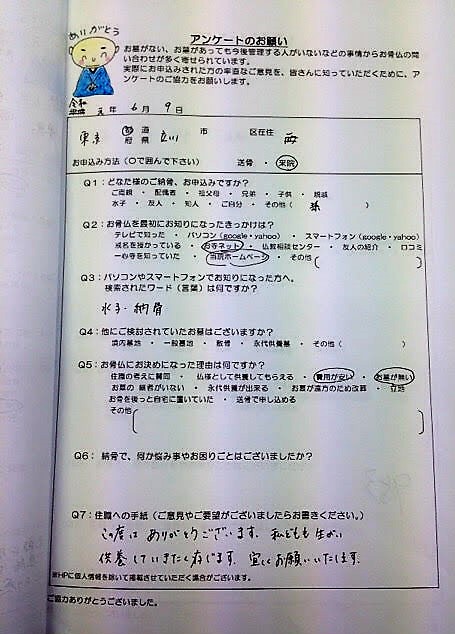 ありがとう
アンケートのお願い
お墓がない、お墓があっても今後管理する人がいないなどの事情からお骨仏の問
い合わせが多く寄せられています。
実際にお申込みされた方の率直なご意見を、皆さんに知っていただくために、ア
ンケートのご協力をお願いします。
令和
平成 元 年 6 月 9 日
東京 都道府県 立川 市 区在住
お申込み方法（○で囲んで下さい） 送骨 ・ 来院
Q1：どなた様のご納骨、お申込みですか？
ご両親 ・ 配偶者 ・ 祖父母 ・ 兄弟 ・ 子供 ・ 親戚
水子 ・ 友人 ・ 知人 ・ ご自分 ・ その他（ 孫 ）
Q2：お骨仏を最初にお知りになったきっかけは？
テレビで知った ・ パソコン（google・yahoo） ・ スマートフォン（google・yahoo）
戒名を授かっている ・ お寺ネット ・ 仏教相談センター ・ 友人の紹介 ・ 口コミ
一心寺を知っていた ・ 当院ホームページ ・ その他
Q3：パソコンやスマートフォンでお知りになった方へ。
検索されたワード（言葉）は何ですか？
水子・納骨
Q4：他にご検討されていたお墓はございますか？
境内墓地 ・ 一般墓地 ・ 散骨 ・ 永代供養墓 ・ その他（ ）
Q5：お骨仏にお決めになった理由は何ですか？
住職の考えに賛同 ・ 仏様として供養してもらえる ・ 費用が安い ・ お墓が無い
お墓の 継者がいない ・ 永代供養が出来る ・ お墓が遠方のため改葬 ・ 立地
お骨を後っと自宅に置いていた ・ 送骨で申し込める
その他
Q6： 納骨で、何か悩み事やお困りごとはございましたか？
Q7：住職への手紙（ご意見やご要望がございましたらお書きください。）
この度は ありがとうございます。私どもも生がい
供養していきたく存じます。宜しくお願いいたします。
※HPに個人情報を除いて掲載させていただく場合がございます。
ご協力ありがとうございました。